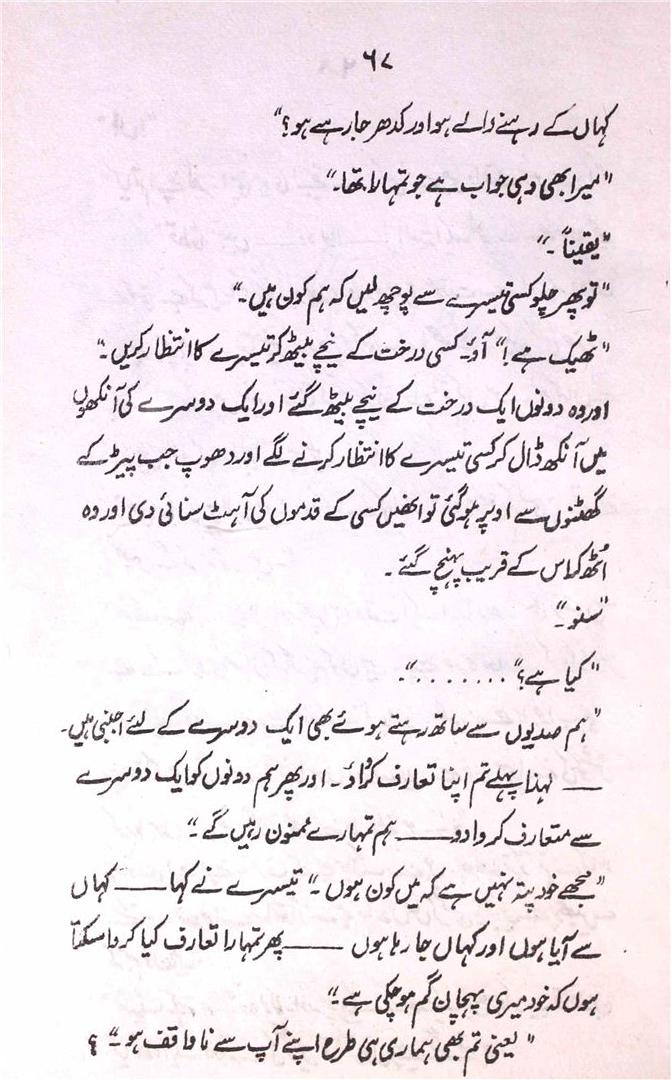 ۶۷
کہاں کے رہنے والے ہو اور کدھر جا رہے ہو؟"
"میرا بھی وہی جواب ہے جو تمہارا تھا۔"
"یقیناً۔"
"تو پھر چلو کسی تیسرے سے پوچھ لیں کہ ہم کون ہیں۔"
"ٹھیک ہے!" آؤ۔ کسی درخت کے نیچے بیٹھ کر تیسرے کا انتظار کریں۔"
اور وہ دونوں ایک درخت کے نیچے بیٹھ گئے اور ایک دوسرے کی آنکھوں
میں آنکھ ڈال کر کسی تیسرے کا انتظار کرنے لگے اور دھوپ جب پیڑ کے
گھٹنوں سے اوپر ہو گئی تو انھیں کسی کے قدموں کی آہٹ سنائی دی اور وہ
اُٹھ کر اس کے قریب پہنچ گئے۔
"سنو۔"
"کیا ہے؟" ........"۔
"ہم صدیوں سے ساتھ رہتے ہوئے بھی ایک دوسرے کے لئے اجنبی ہیں۔
—— لہٰذا پہلے تم اپنا تعارف کراؤ۔ اور پھر ہم دونوں کو ایک دوسرے
سے متعارف کروا دو —— ہم تمہارے ممنون رہیں گے۔"
"مجھے خود پتہ نہیں ہے کہ میں کون ہوں۔" تیسرے نے کہا —— کہاں
سے آیا ہوں اور کہاں جا رہا ہوں —— پھر تمہارا تعارف کیا کروا سکتا
ہوں کہ خود میری پہچان گم ہو چکی ہے۔"
"یعنی تم بھی ہماری ہی طرح اپنے آپ سے ناواقف ہو۔" ؟